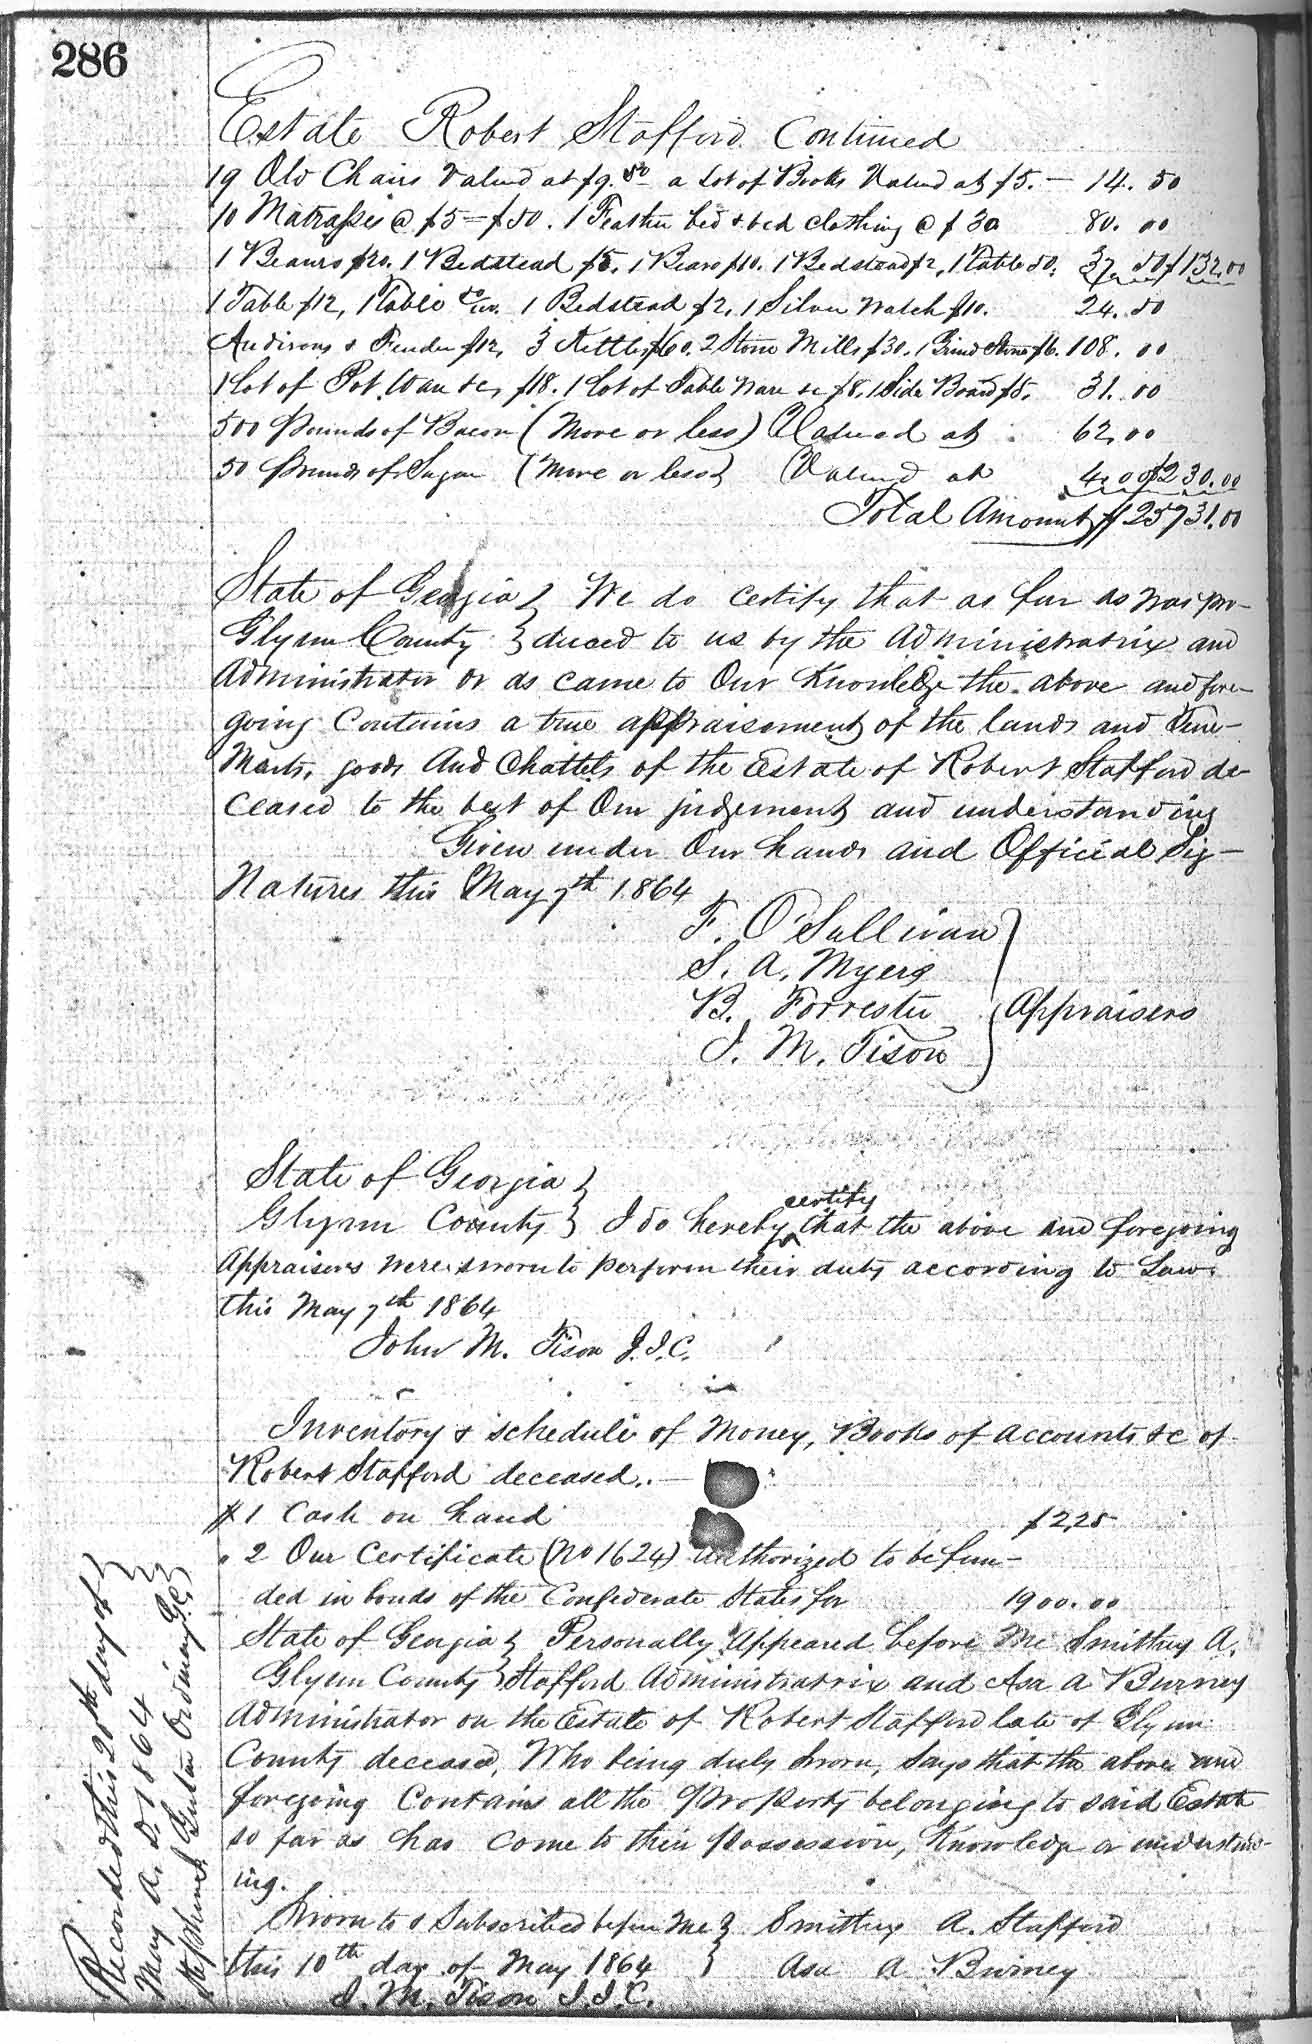 286
Estate Robert Stafford Continued
19 Old Chairs Valued at $9.50 a Lot of Books Valued at $5. — 14. 50
10 Matrasses @ $5 = $50. 1 Feather bed & bed clothing @ $30 80. 00
1 Beauro $20. 1 Bedstead $5, 1 Bearo $10. 1 Bedstead $2, 1 Table 50, 37. 50 $132,00
1 Table $12, 1 Table 1 Bedstead $2, 1 Silver Watch $10. 24. 50
Andirons & Fender $12, 3 Kettles $60. 2 Stone Mills $30. 1 Grind Stone $6. 108. 00
1 Lot of Pot Ware &c, $18. 1 Lot of Table Ware &c $8, 1 Side Board $5, 31. 00
500 Pounds of Bacon (More or less) Valued at 62,00
50 Pounds of Sugar (More or less) Valued at 4.00 $230.00
Total Amount $25731.00
State of Georgia } We do certify that as far as was pro-
Glynn County } duced to us by the Administratrix and
Administrator or as came to Our Knowledge the above and fore-
going Contains a true appraisement of the lands and Tene-
Ments, goods And Chattels of the Estate of Robert Stafford de-
ceased to the best of Our judgement and understanding
Given under Our hands and Official Sig-
Natures this May 7th 1864
F. O'Sullivan
S. A, Myers
B. Forrester } Appraisers
J. M. Tison
State of Georgia }
certify
Glynn County } I do hereby ^ that the above and foregoing
Appraisers were sworn to perform their duty according to Law.
this May 7th 1864
John M. Tison J.I.C.
Inventory & schedule of Money, Books of accounts &c of
Robert Stafford deceased. —
# 1 Cash on hand $2,25
" 2 Our Certificate (No 1624) Authorized to be fun-
ded in bonds of the Confederate States for 1900.00
State of Georgia } Personally Appeared before Me Smithey A.
Glynn County } Stafford Administratrix and Asa A Burney
Administrator on the Estate of Robert Stafford late of Glynn
County deceased, Who being duly sworn, Says that the above and
foregoing Contains all the Property belonging to said Estate
so far as has come to their Possession, Knowledge or understand-
ing.
Sworn to & Subscribed before Me } Smithey A. Stafford
this 10th day of May 1864 } Asa A Burney
J. M. Tison J.I.C.
Recorded this 20th day of }
May A. D. 1864 }
Ordinary G.C. }